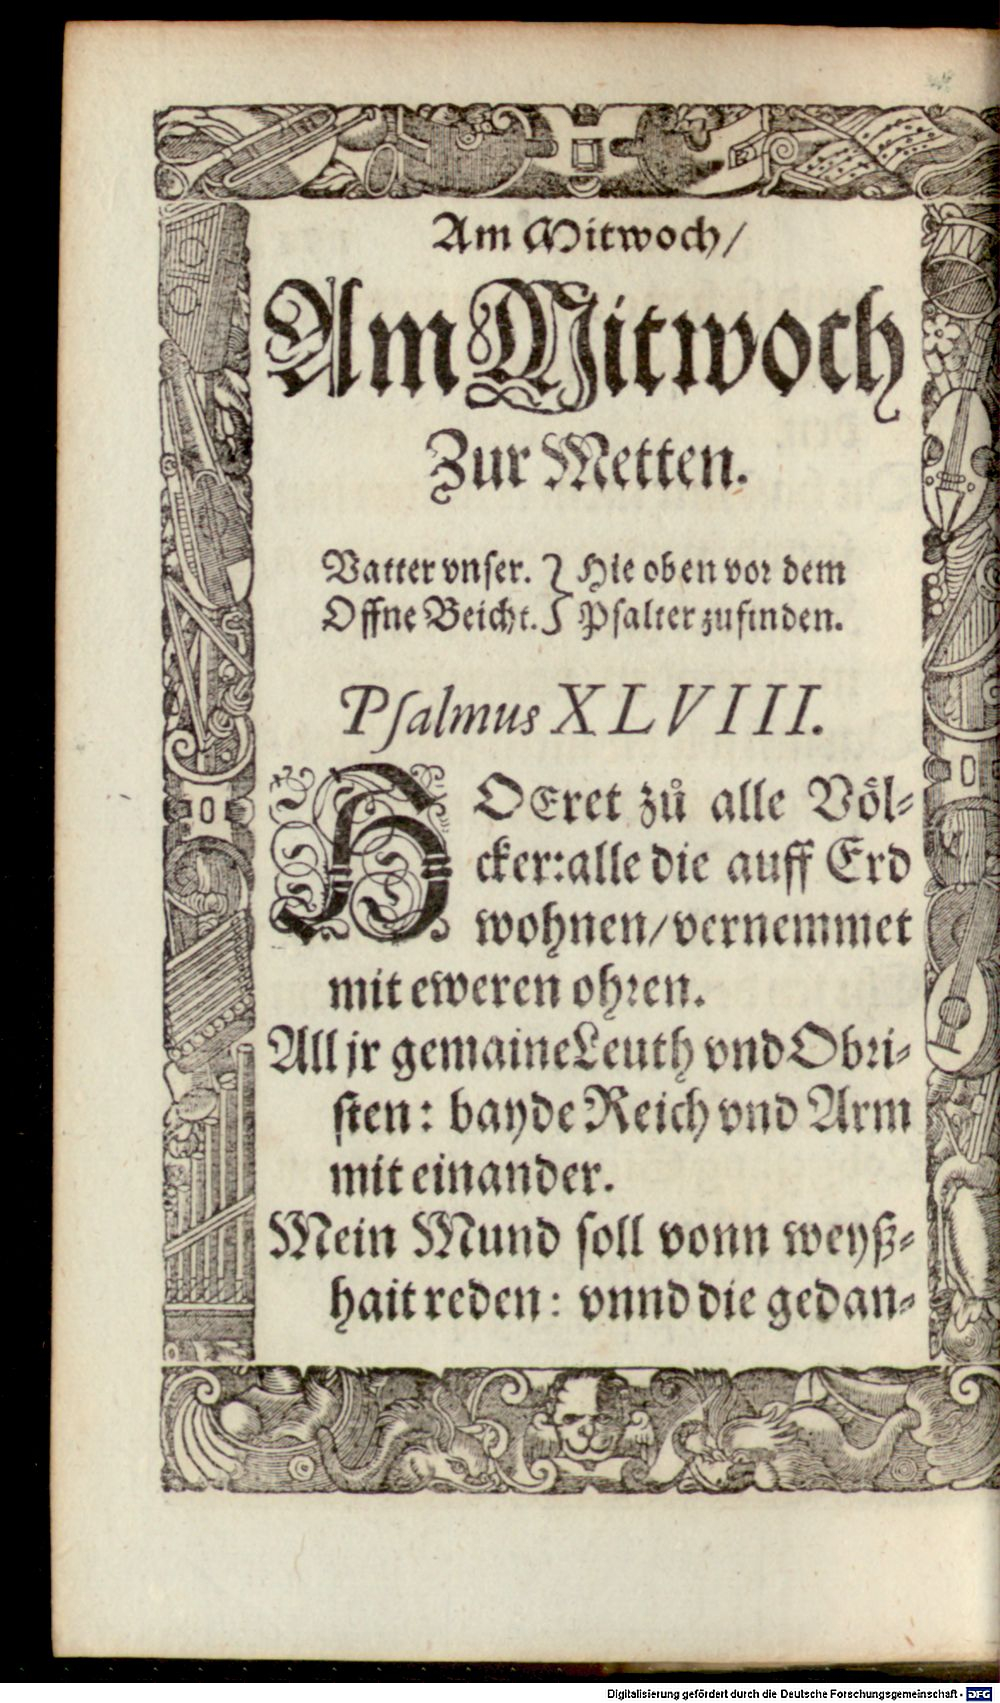 Am Mitwoch/
Am Mitwoch
Zur Metten.
Vatter vnser. } Hie oben vor dem
Offne Beicht. } Psalter zufinden.
Psalmus XLVIII.
HOEret zů alle Völ-
cker: alle die auff Erd
wohnen/ vernemmet
mit eweren ohren.
All jr gemaine Leuth vnd Obri-
sten: bayde Reich vnd Arm
mit einander.
Mein Mund soll vonn weyß-
hait reden: vnnd die gedan-
Digitalisierung gefördert durch die Deutsche Forschungsgemeinschaft - DFG